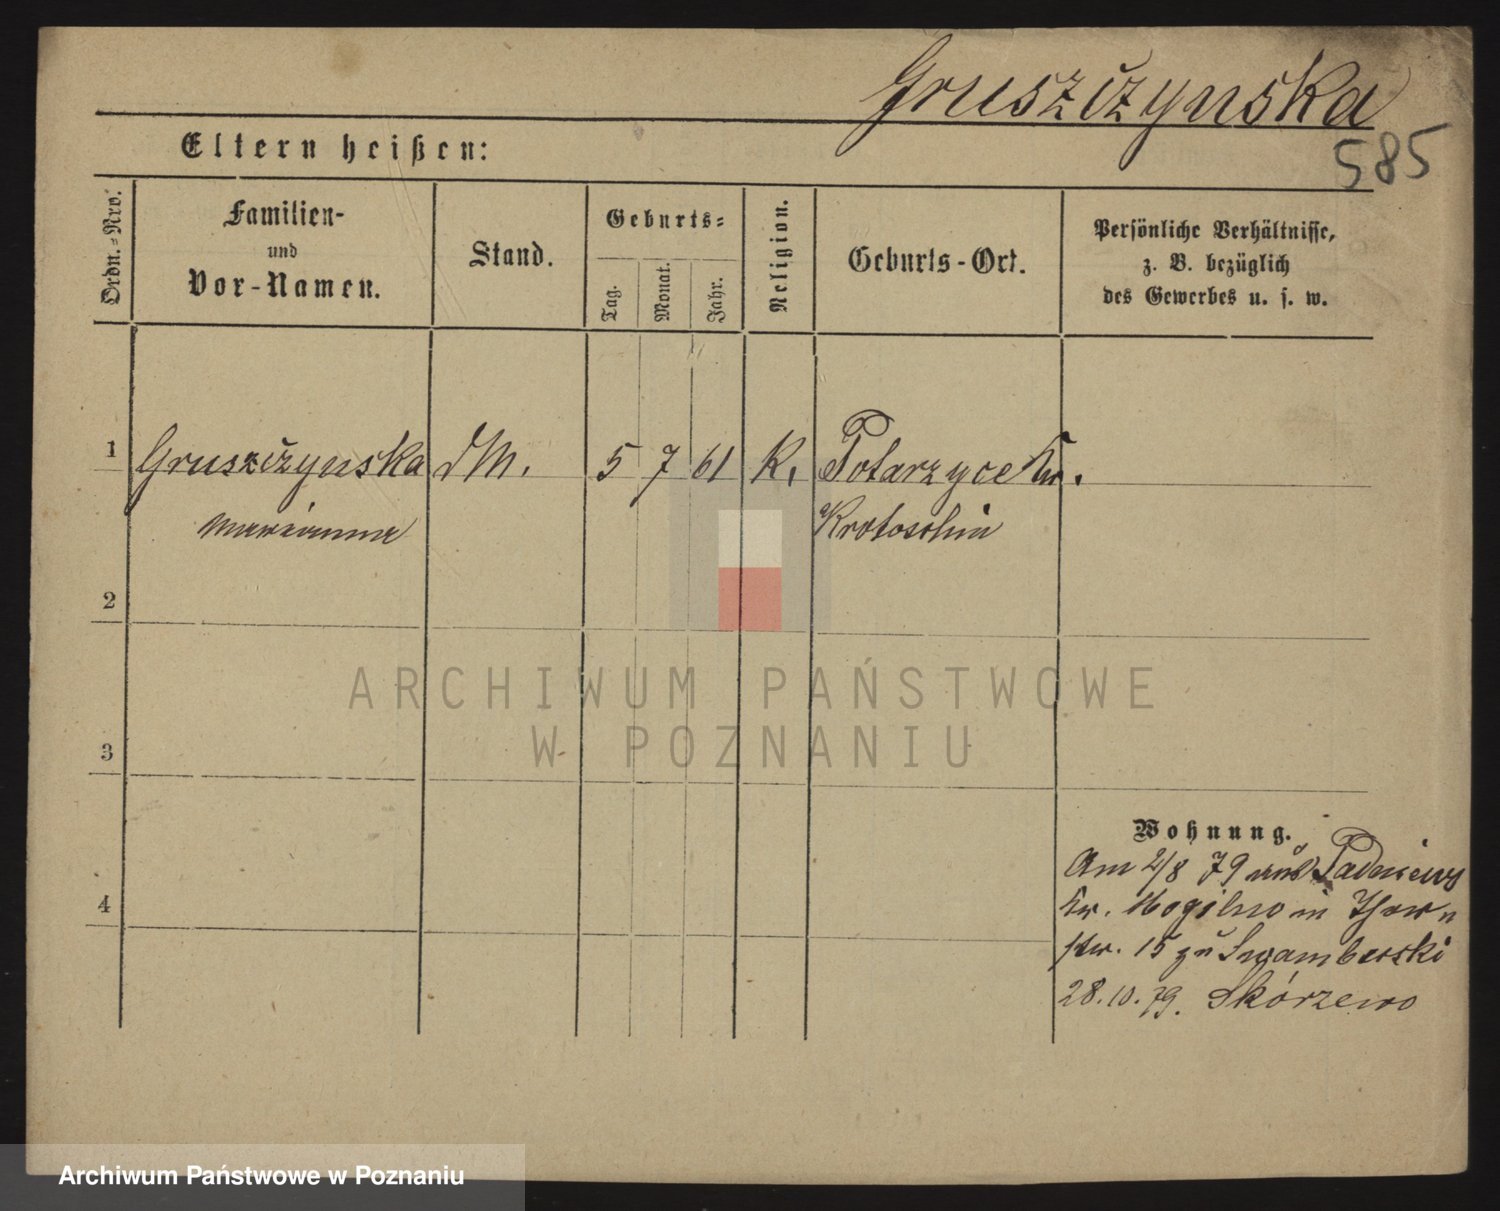 Gruszczynska
585
Eltern heißen:
Ordn.-Nro.
Familien-
und
Vor-Namen.
Stand.
Geburts-
Tag.
Monat.
Jahr.
Religion.
Geburts-Ort.
Persönliche Verhältnisse,
z. B. bezüglich
des Gewerbes u. s. w.
1 Gruszczynska dM. 5 7 61 K. Potarzyce Kr.
Marianna Krotoschin
2
3
4
Wohnung.
Am 2/8 79 aus Padniewy
Kr. Mogilno in Thorn
15 zu
28.10.79. Skórzewo
ARCHIWUM PAŃSTWOWE
W POZNANIU
Archiwum Państwowe w Poznaniu